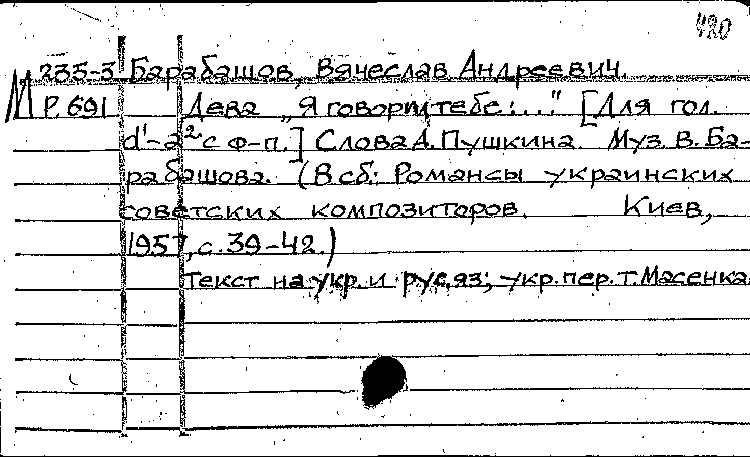 480
М 235-3 Барабашов, Вячеслав Андреевич.
Р. 691 Дева „Я говорил тебе:..." [Для гол.
d¹-a² с ф-п.] Слова А. Пушкина. Муз. В. Ба-
рабашова. (В сб: Романсы украинских
советских композиторов. Киев,
1957, с. 39-42.)
Текст на укр. и рус. яз; укр. пер. Т. Масенка.